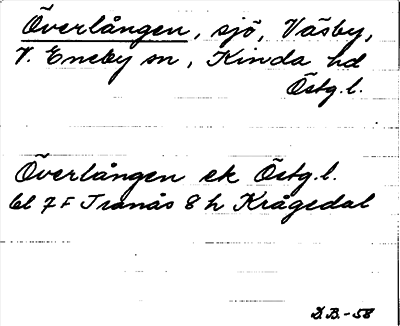 Överlången, sjö, Väsby,
V. Eneby sn, Kinda hd
Östg.l.
Överlången ek Östg.l.
bl 7 F Tranås 8 h Krågedal
D.B.-58